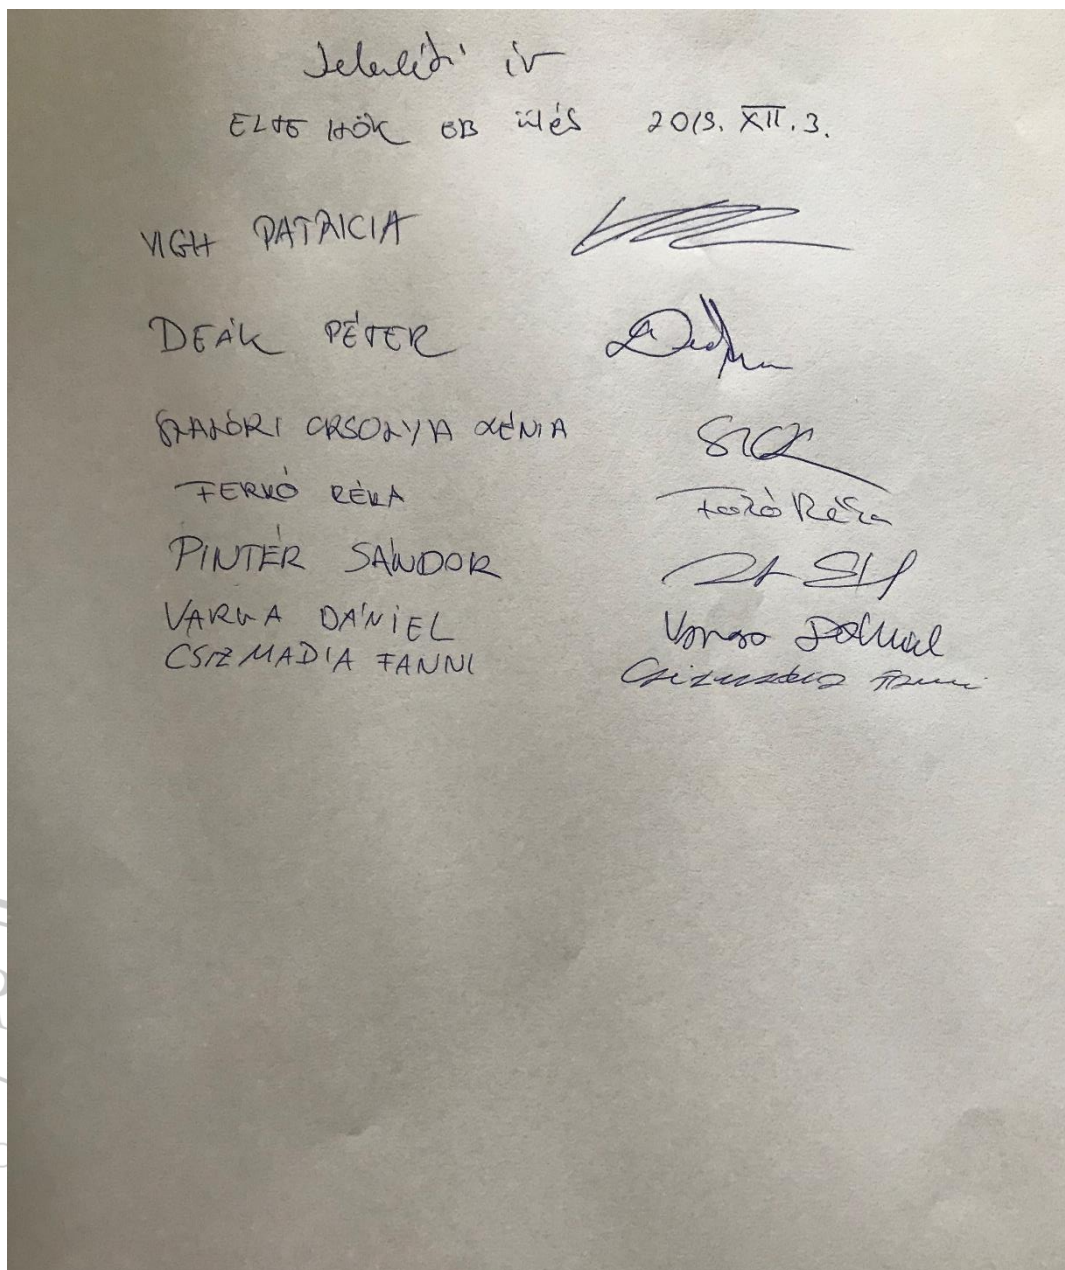 Jelenléti ív
ELTE HÖK EB ülés 2019. XII. 3.
VIGH PATRICIA
DEÁK PÉTER Deák
ORSOLYA XÉNIA
FERKÓ RÉKA Ferkó Réka
PINTÉR SÁNDOR
VARGA DÁNIEL Varga Dániel
CSIZMADIA FANNI Csizmadia Fanni